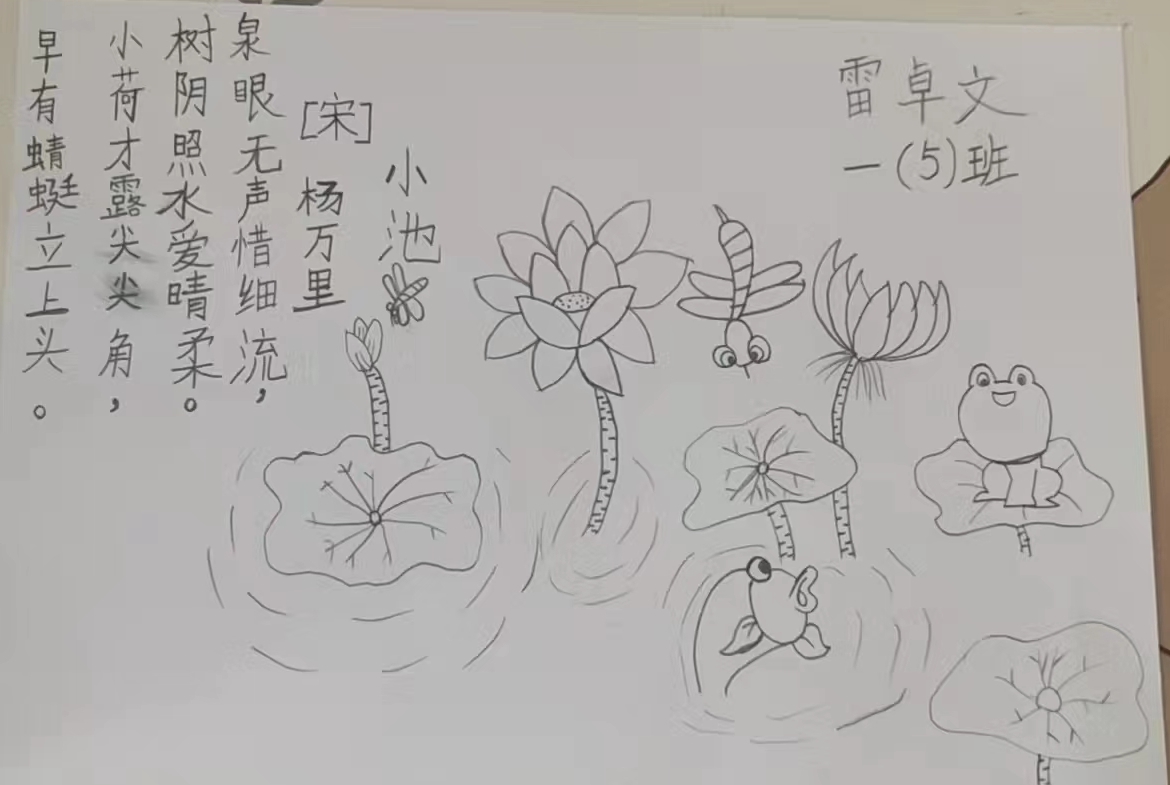 小池
[宋] 杨万里
泉眼无声惜细流，
树阴照水爱晴柔。
小荷才露尖尖角，
早有蜻蜓立上头。
雷卓文
一(5)班